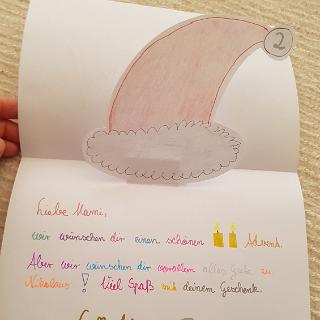 2
Liebe Mami,
wir wünschen dir einen schönen Advent.
Aber wir wünschen dir vorallem alles Gute zu
Nikolaus! Viel Spaß mit deinem Geschenk.